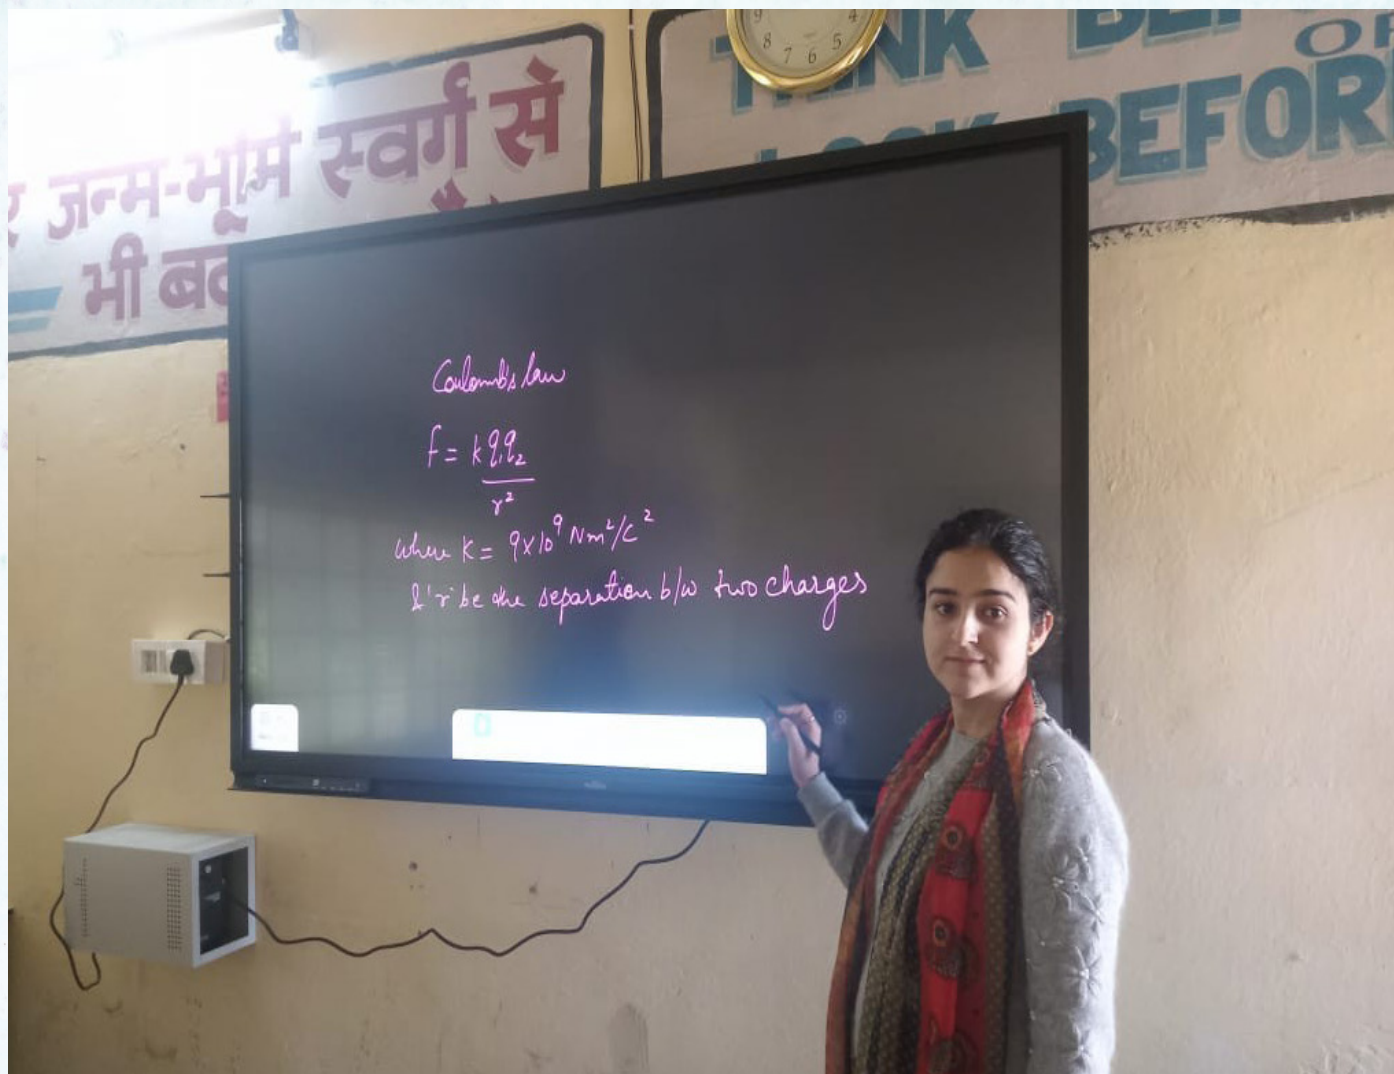 जन्म-भूमि स्वर्ग से
भी
9 8 7 6 5 4
THINK
BEFORE
Coulomb's law
F = k q₁q₂
r²
where K = 9x10⁹ Nm²/C²
& 'r' be the separation b/w two charges